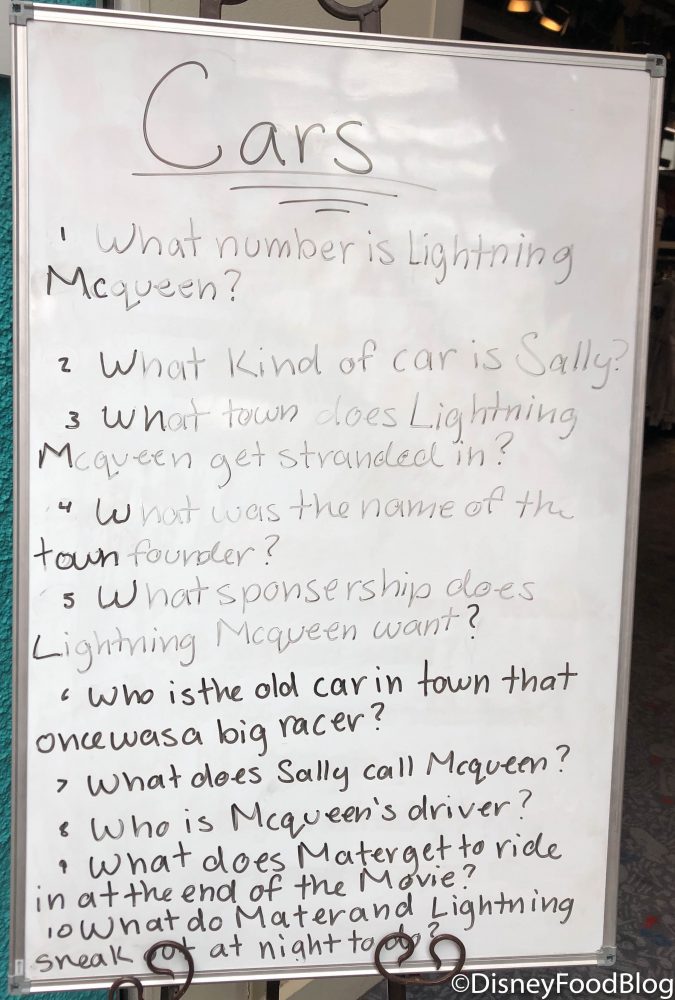 Cars
1 What number is Lightning
Mcqueen?
2 What Kind of car is Sally?
3 What town does Lightning
Mcqueen get stranded in?
4 What was the name of the
town founder?
5 What sponsership does
Lightning Mcqueen want?
6 Who is the old car in town that
once was a big racer?
7 What does Sally call Mcqueen?
8 Who is Mcqueen's driver?
9 What does Mater get to ride
in at the end of the Movie?
10 What do Mater and Lightning
sneak out at night to do?
©DisneyFoodBlog